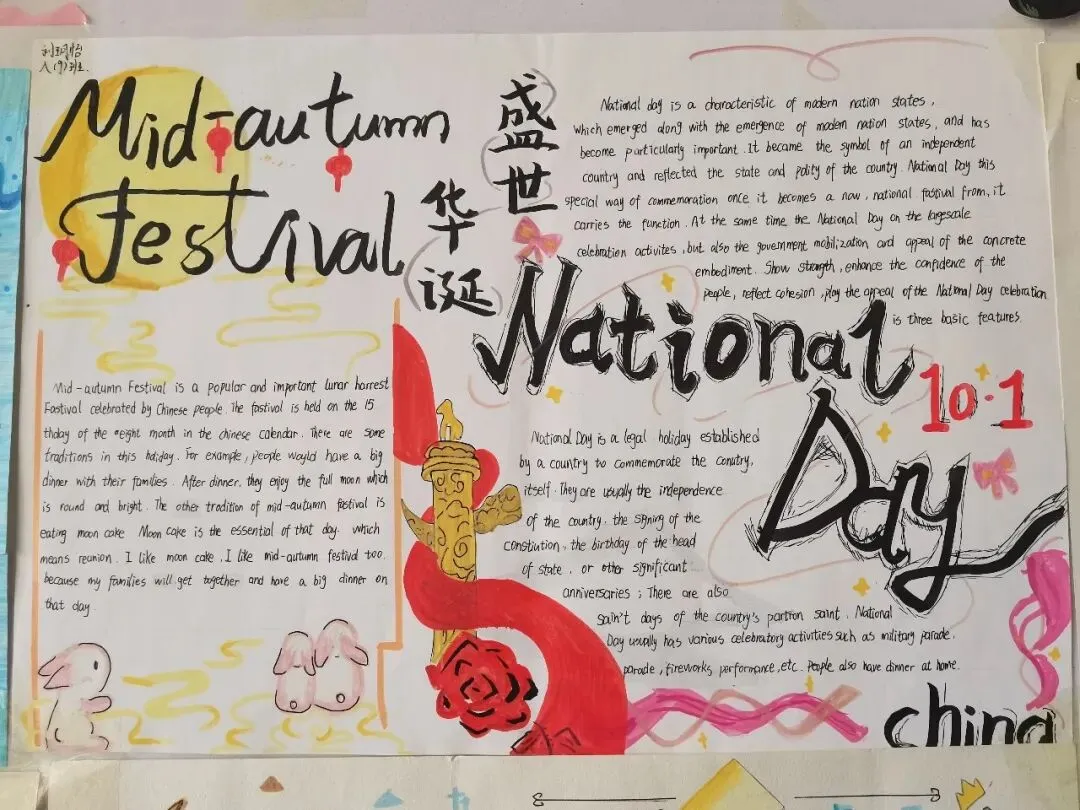 八(9)班
Mid-autumn
Festival
盛世
华诞
Mid-autumn Festival is a popular and important lunar harrest
Fastival celebrated by Chinese people. The fastival is held on the 15
thday of the eight month in the chinese calendar. There are some
traditions in this holiday. For example, people would have a big
dinner with their families. After dinner, they enjoy the full moon which
is round and bright. The other tradition of mid-autumn festival is
eating moon cake Moon cake is the essential of that day. which
means reunion. I like moon cake, I like mid-autumn festival too.
because my families will get together and have a big dinner on
that day.
National day is a characteristic of modern nation states,
which emerged along with the emergence of modern nation states, and has
become particularly important. It became the symbol of an independent
country and reflected the state and polity of the country. National Day this
special way of commemoration once it becomes a now, national fastival from, it
carries the function. At the same time the National Day on the largescale
celebration activites, but also the government mobilization and appeal of the concrete
embodiment. Show strength, enhance the confidence of the
people, reflect cohesion, play the appeal of the National Day celebration
is three basic features.
National
10·1
Day
National Day is a legal holiday established
by a country to commemorate the country,
itself. They are usually the independence
of the country. the signing of the
constiution, the birthday of the head
of state. or other significant
anniversaries; There are also
sain't days of the country's partron saint. National
Day usually has various celebratory activities such as military parade,
parade, fireworks performance, etc. People also have dinner at home.
china